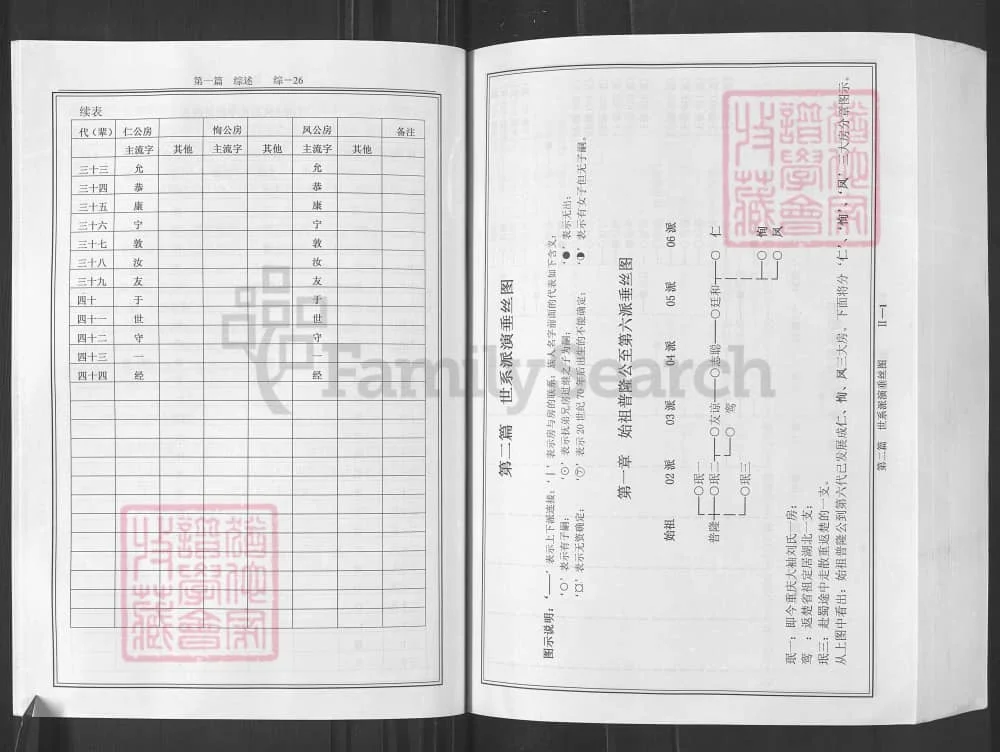 第一篇 综述 综－26
续表
代（辈） 仁公房 恂公房 凤公房 备注
主流字 其他 主流字 其他 主流字 其他
三十三 允 允
三十四 恭 恭
三十五 康 康
三十六 宁 宁
三十七 敦 敦
三十八 汝 汝
三十九 友 友
四十 于 于
四十一 世 世
四十二 守 守
四十三 一 一
四十四 经 经
第二篇 世系派演垂丝图
图示说明：‘——’表示上下派连接；‘｜’表示房与房的联系；族人名字前面的代表如下含义：
‘○’表示有子嗣； ‘⊙’表示抚弟兄房过继之子为嗣； ‘●’表示无出；
‘口’表示无资确定； ‘?’表示20世纪70年后出生的不能确定； ‘◑’表示有女子但无子嗣。
第一章 始祖普隆公至第六派垂丝图
始祖 02派 03派 04派 05派 06派
○珉一
普隆 ○珉二 ○友谅 ○志聪 ○廷和 ○仁
○鸾
○珉三
○恂
○凤
珉一：即今重庆大袖刘氏一房；
鸾：返楚省祖定居湖北一支；
珉三：赴蜀途中走散重返楚的一支。
从上图中看出：始祖普隆公到第六代已发展成仁、恂、凤三大房。下面将分‘仁’、‘恂’、‘凤’三大房分章图示。
第二篇 世系派演垂丝图 II－1
FamilySearch